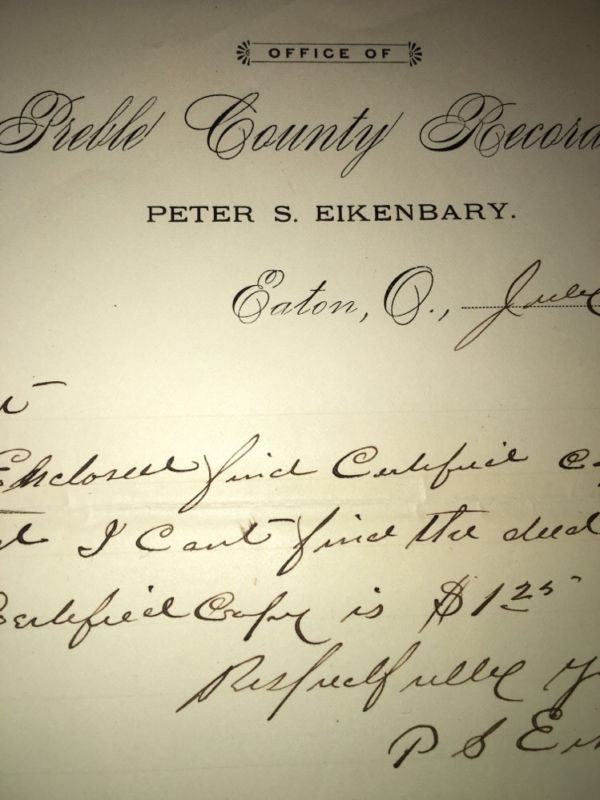 OFFICE OF
Preble County Record
PETER S. EIKENBARY.
Eaton, O., July
Enclosed find Certified
I Cant find the deed
Certified Copy is $1 25
Respectfully
P S